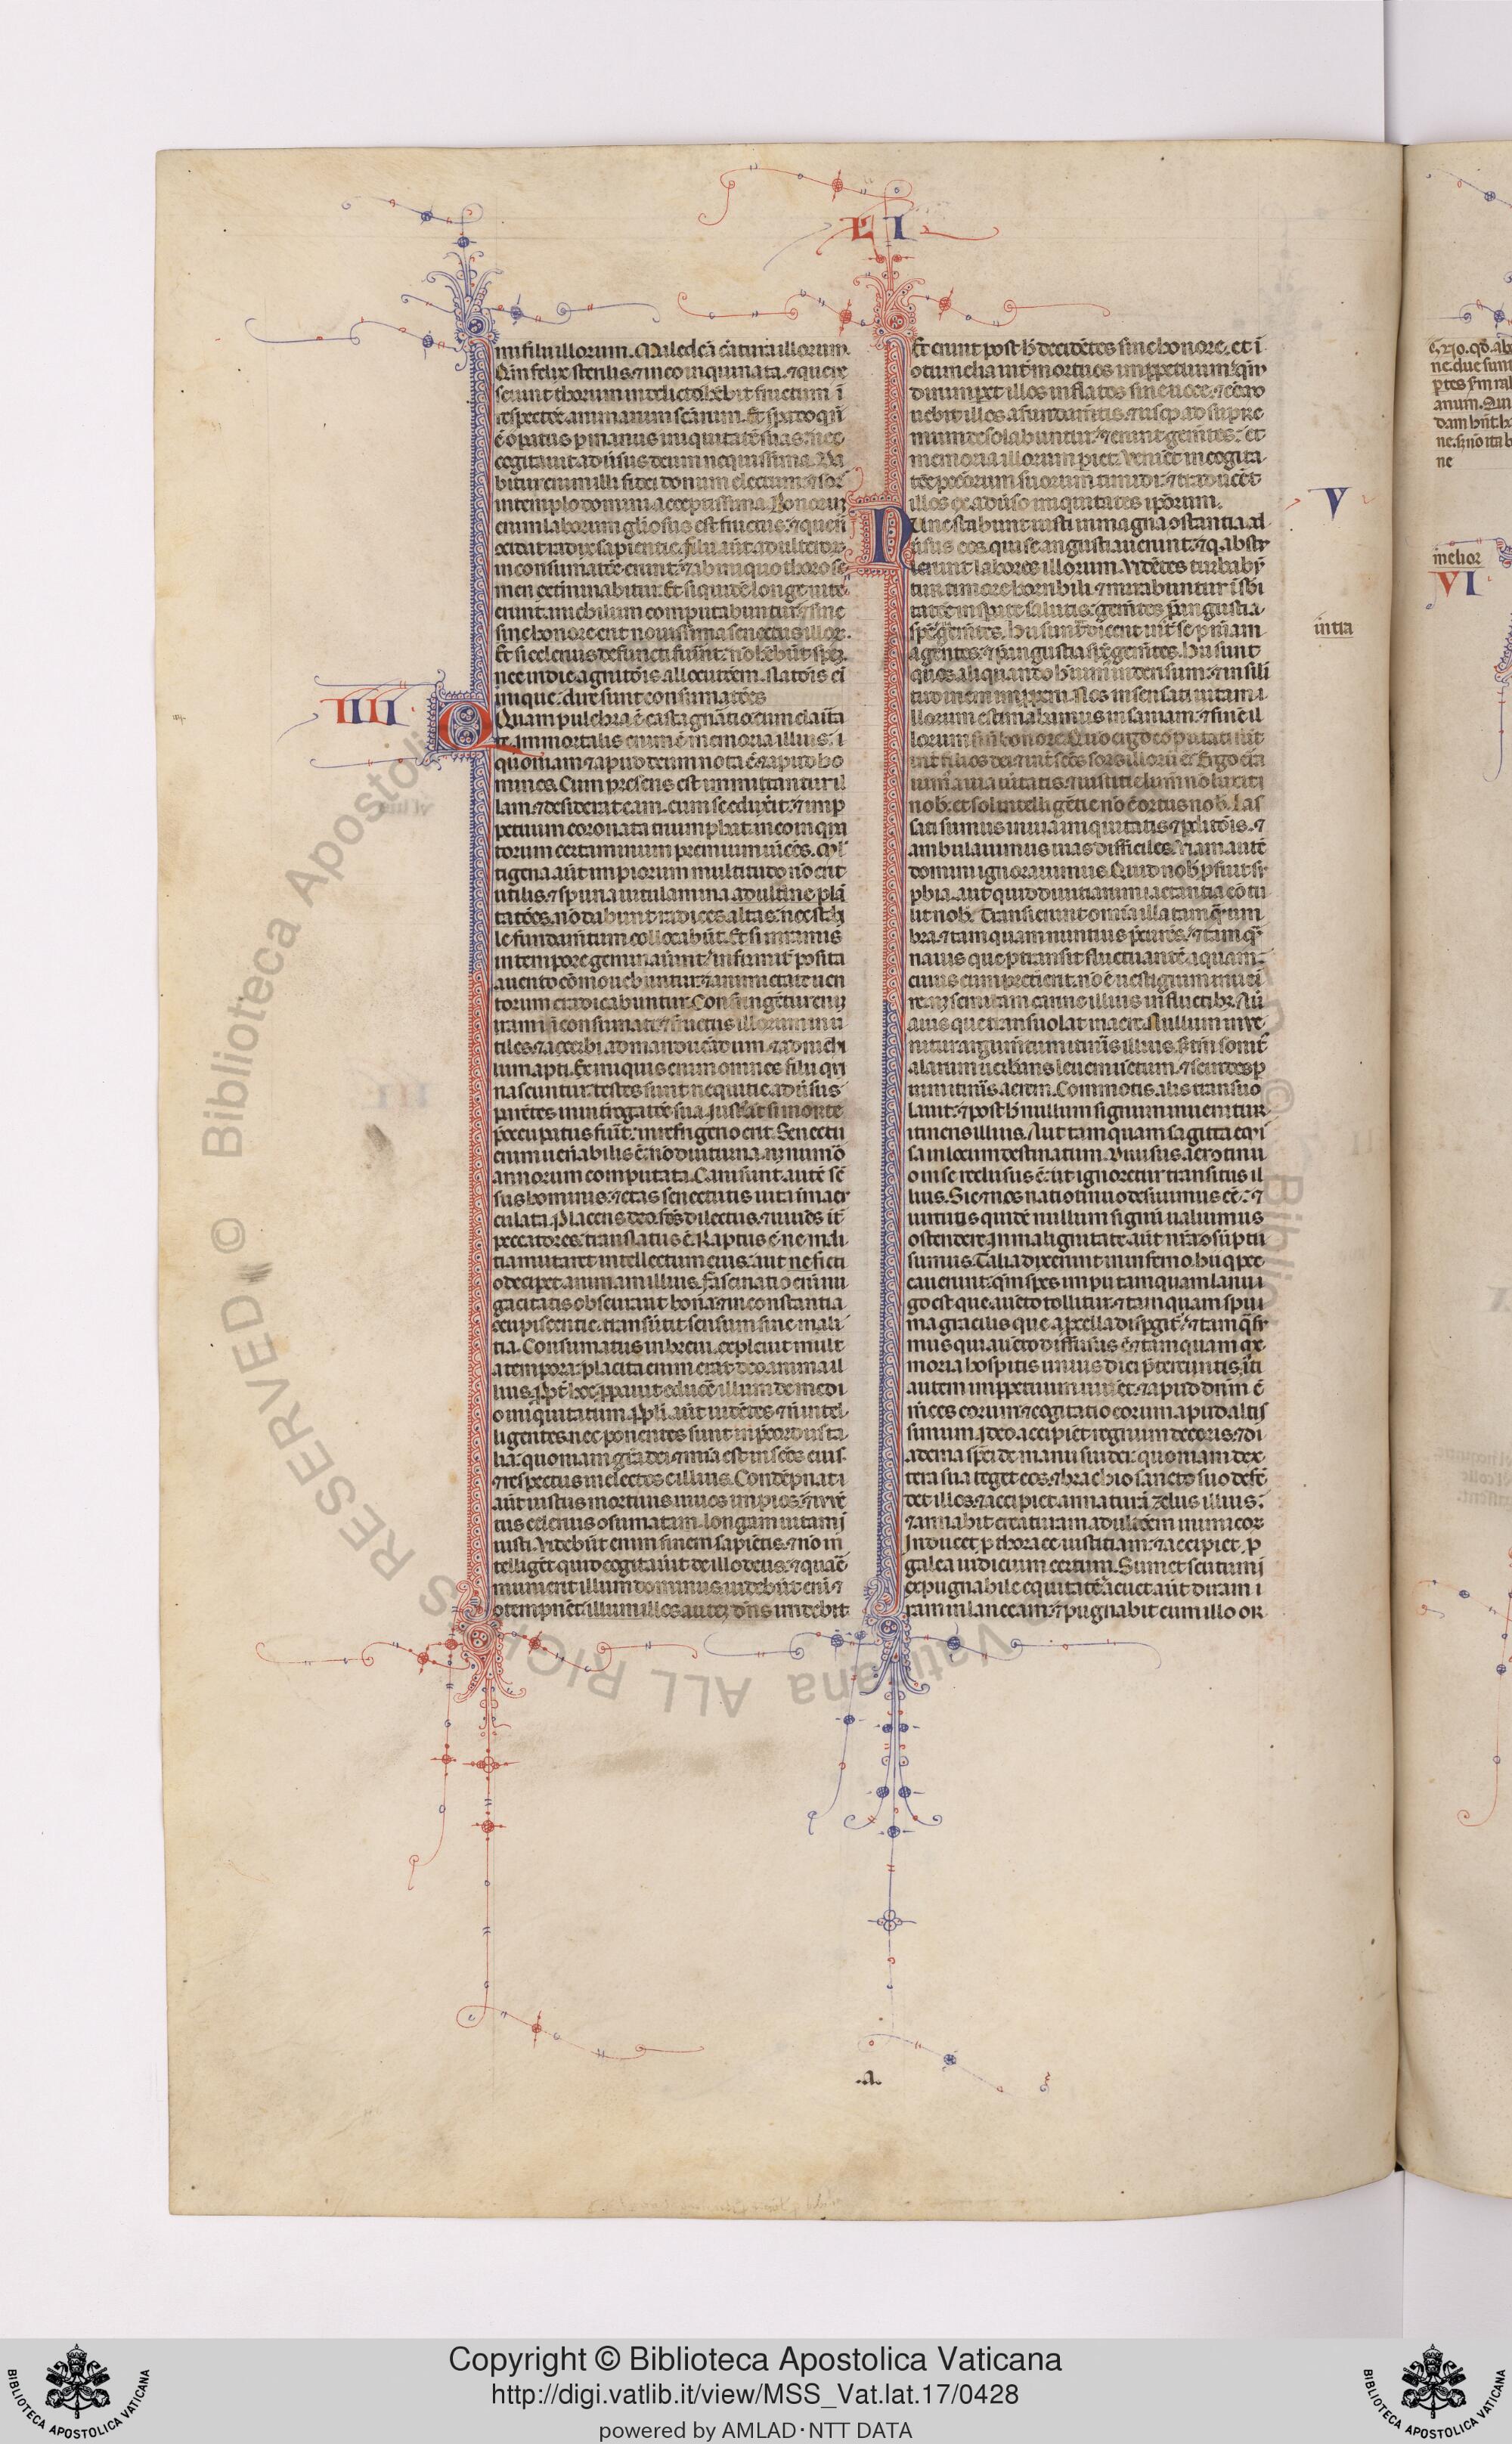 LI
mi filii illorum. Maledcā cātura illorum.
Qm felix sterilis. ⁊ incoinquinata. ⁊ que ne
sciuit thorum in delicto. hēbit fructum ī
respectōe animarum scārum. Et spado qui
ē opatus p manus iniquitatē suas: nec
cogitauit aduersus deum nequissima. Da
bitur enim illi fidei donum electum. ⁊ sor
in templo domini acceptissima. Bonorum
enim laborum gliosus est fructus: ⁊ que nō
cōcidat radix sapientie. filii aūt adulteror
in consumatōe erunt. ⁊ ab iniquo thoro se
men exterminabitur. Et si quidē longe uite
erunt. in nichilum computabuntur. ⁊ sine
sine honore erit nouissima senectus illor.
Et si celerius defuncti fuerint: nō hēbūt spem
nec in die agnitōis allocutōem. Natōis eī
inique: dure sunt consumatōes
IIII
O Quam pulchra ē casta gnātio cum clarita
te. Immortalis enim ē memoria illius: ī
quoniam ⁊ apud deum nota ē. ⁊ apud ho
mines. Cum presens est immittantur il
lam. ⁊ desiderāt eam. cum se eduxerit. ⁊ in p
petuum coronata triumphat. incoinqna
torum certaminum premium uicēs. Mul
tigena aūt impiorum multitudo nō erit
utilis. ⁊ spuria uitulamina adultine plā
tatōes. nō dabunt radices altas: nec stabi
le fundamētum collocabūt. Et si in ramis
in tempore germinauerint: infirmit posita
a uento cōmouebuntur. ⁊ a nimietate uen
torum eradicabuntur. Confringētur enim
rami iconsumati. ⁊ fructus illorum inu
tiles. ⁊ acerbi ad manducādum. ⁊ ad nichi
lum apti. Ex iniquis enim omnes filii qui
nascuntur: testes sunt nequitie aduersus
parētes in interrogatōe sua. Justus aūt si morte
preocupatus fuerit: in refrigerio erit. Senectus
enim uenerabilis ē: nō diuturna. nec numō
annorum computata. Cani sunt autē sē
sus hominis: ⁊ etas senectutis uita imacu
culata. Placens deo. fcūs dilectus. ⁊ uiuēs īt
peccatores: translatus ē. Raptus ē ne mali
tia mutaret intellectum eius: aut ne ficti
o decipet animam illius. Fascinatio enī nu
gacitatis obscurat bona: ⁊ inconstantia
cōcupiscentie. transuertit sensum sine mali
tia. Consumatus in breui. expleuit mult
a tempora: placita enim erat deo anima il
lius. Ppt hoc pparauit educē illum de medi
o iniquitatum. Ppli aūt uidētes. ⁊ nō intel
ligentes. nec ponentes sunt in precordiis ta
lia: quoniam grā dei. ⁊ mīa est in scōs eius.
⁊ respectus in electos illius. Condēpnat
aūt iustus mortuus uiuos impios. ⁊ iuuē
tus celerius cōsumata. longam uitam i
iusti. Videbūt enim finem sapiētis. ⁊ nō in
telligēt quid cogitauerit de illo deus. ⁊ quare
munierit illum dominus. uidebūt enī ⁊
cōtempnēt illum. illos autem dn̄s irridebit
Et erunt post hec decidētes sine honore. et ī
cōtumelia inter mortuos in perpetuum: qm
dirumpet illos inflatos sine uoce. ⁊ cōmo
uebit illos a fundamētis. ⁊ usque ad supre
mum desolabuntur. ⁊ erunt gemētes: et
memoria illorum piet. Veniēt in cogita
tōe peccatorum suorum timidi. ⁊ traducēt
illos ex aduerso iniquitates ipsorum.
V
Nunc stabunt iusti in magna cōstantia. ad
uersus eos qui se angustiauerunt. ⁊ q abstu
lerunt labores illorum. Vidētes turbabū
tur timore horribili. ⁊ mirabuntur ī sbi
tatōe insperate salutis: gemētes p angustia
intra
spiritus gemētes. Hii sunt dicent inter se pniam
agentes. ⁊ p angustia spiritus gemētes. Hii sunt
quos aliquando hūimus in derisum. ⁊ in simili
tudinem improperii. Nos insensati uitam i
llorum estimabamus insaniam. ⁊ finē il
lorum sine honore. Quō ergo cōputati sūt
int filios dei. ⁊ int scōs sors illorū ē. Ergo errā
uimus a uia ueritatis. ⁊ iustitie lumē nō luxit
nob. et sol intelligētie nō ē ortus nob. Las
sati sumus in uia iniquitatis. ⁊ pditōis. ⁊
ambulauimus uias difficiles. Viam autē
domini ignorauimus. Quid nob pfuit su
pbia. aut quid diuitiarum iactantia cōtu
lit nob. Transierunt omīa illa tamquam um
bra. ⁊ tamquam nuntius pcurrēs. ⁊ tamquam
nauis que ptransit fluctuantē aquam:
cuius cum preterierit. nō ē uestigium inueī
re. neque semitam carine illius in fluctibus. Aut
auis que transuolat in aere. Nullum inue
nitur argumētum itineris illius. set tm sonit
alarum uerberans leuem uentum. ⁊ scindēs p
uim itineris aerem. Commotis alis transuo
lauit: ⁊ post hec nullum signum inuenitur
itineris illius. Aut tamquam sagitta emi
sa in locum destinatum. Diuisus aer cōtinu
o in se reclusus ē: ut ignoretur transitus il
lius. Sic ⁊ nos nati cōtinuo desiuimus eē: ⁊
uirtutis quidē nullum signū ualuimus
ostendere. In malignitate aūt nrā cōsūpti
sumus. Talia dixerunt in inferno. hii q pec
cauerunt: qm spes impii tamquam lanu
go est que a uēto tollitur. ⁊ tamquam spu
ma gracilis que a procella dispergit. ⁊ tamquam fu
mus qui a uēto diffusus ē. ⁊ tamquam me
moria hospitis unius diei pretereuntis. iusti
autem in perpetuum uiuēt. ⁊ apud dnm ē
mces eorum. ⁊ cogitatio eorum apud altis
simum. Ideo accipiēt regnum decoris. ⁊ di
adema spēi de manu sui dei: quoniam dex
tera sua teget eos. ⁊ brachio sancto suo defē
det illos. ⁊ accipiet armaturā zelus illius:
⁊ armabit creaturam ad ultiōem inimicor
Induet p thorace iustitiam. ⁊ accipiet. p
galea iudicium certum. Sumet scutum i
expugnabile equitatē. acuet aūt diram i
ram in lanceam. ⁊ pugnabit cum illo or
.a.
melior
VI
Copyright © Biblioteca Apostolica Vaticana
http://digi.vatlib.it/view/MSS_Vat.lat.17/0428
powered by AMLAD·NTT DATA
BIBLIOTECA APOSTOLICA VATICANA
BIBLIOTECA APOSTOLICA VATICANA
© Biblioteca Apostolica Vaticana ALL RIGHTS RESERVED